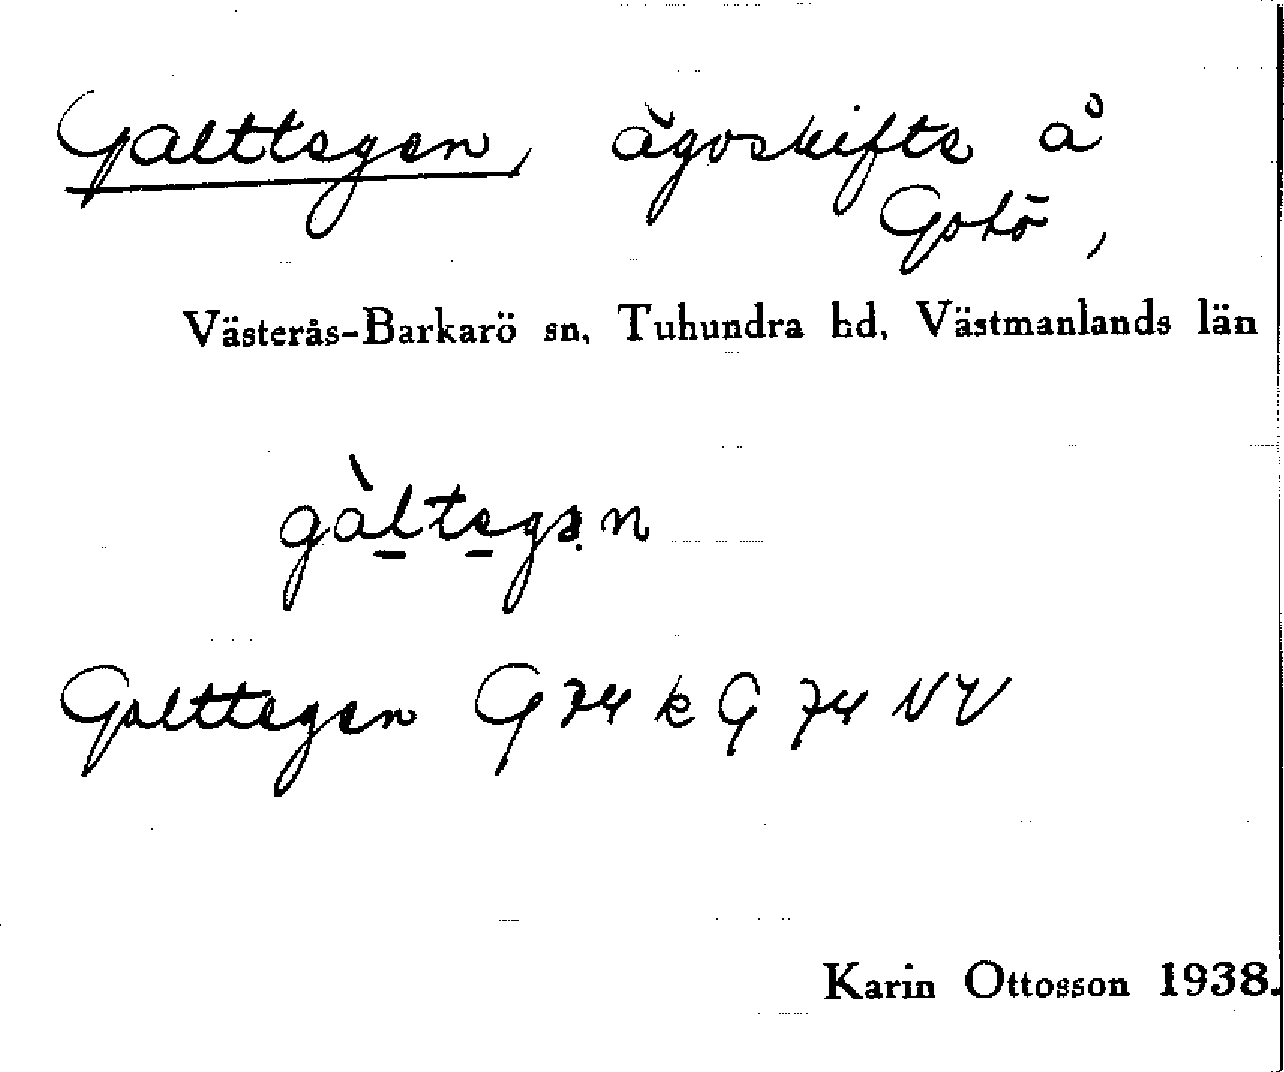 Galttegen, ägoskifte å
Gotö,
Västerås-Barkarö sn, Tuhundra hd, Västmanlands län
gàltegən
Galttegen G 74 k G 74 NV
Karin Ottosson 1938.